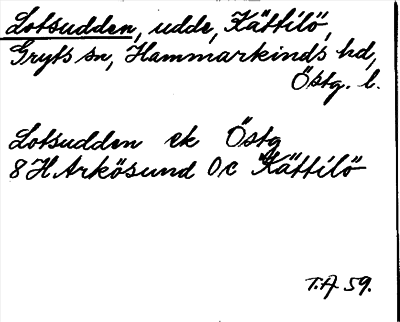 Lotsudden, udde, Kättilö,
Gryts sn, Hammarkinds hd,
Östg. l.
Lotsudden ek Östg
8H Arkösund 0c Kättilö
T.A. 59.